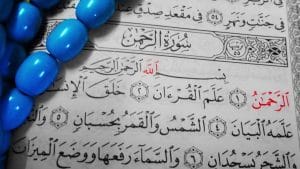 فِى جَنَّٰتٍ وَنَهَرٍ ٥٤ فِى مَقْعَدِ صِدْقٍ
سُورَةُ الرَّحْمَٰنِ
بِسْمِ ٱللَّهِ ٱلرَّحْمَٰنِ ٱلرَّحِيمِ
ٱلرَّحْمَٰنُ ١ عَلَّمَ ٱلْقُرْءَانَ ٢ خَلَقَ
عَلَّمَهُ ٱلْبَيَانَ ٤ ٱلشَّمْسُ وَٱلْقَمَرُ بِحُسْبَانٍ ٥
وَٱلشَّجَرُ يَسْجُدَانِ ٦ وَٱلسَّمَآءَ رَفَعَهَا وَوَضَعَ ٱلْمِيزَانَ